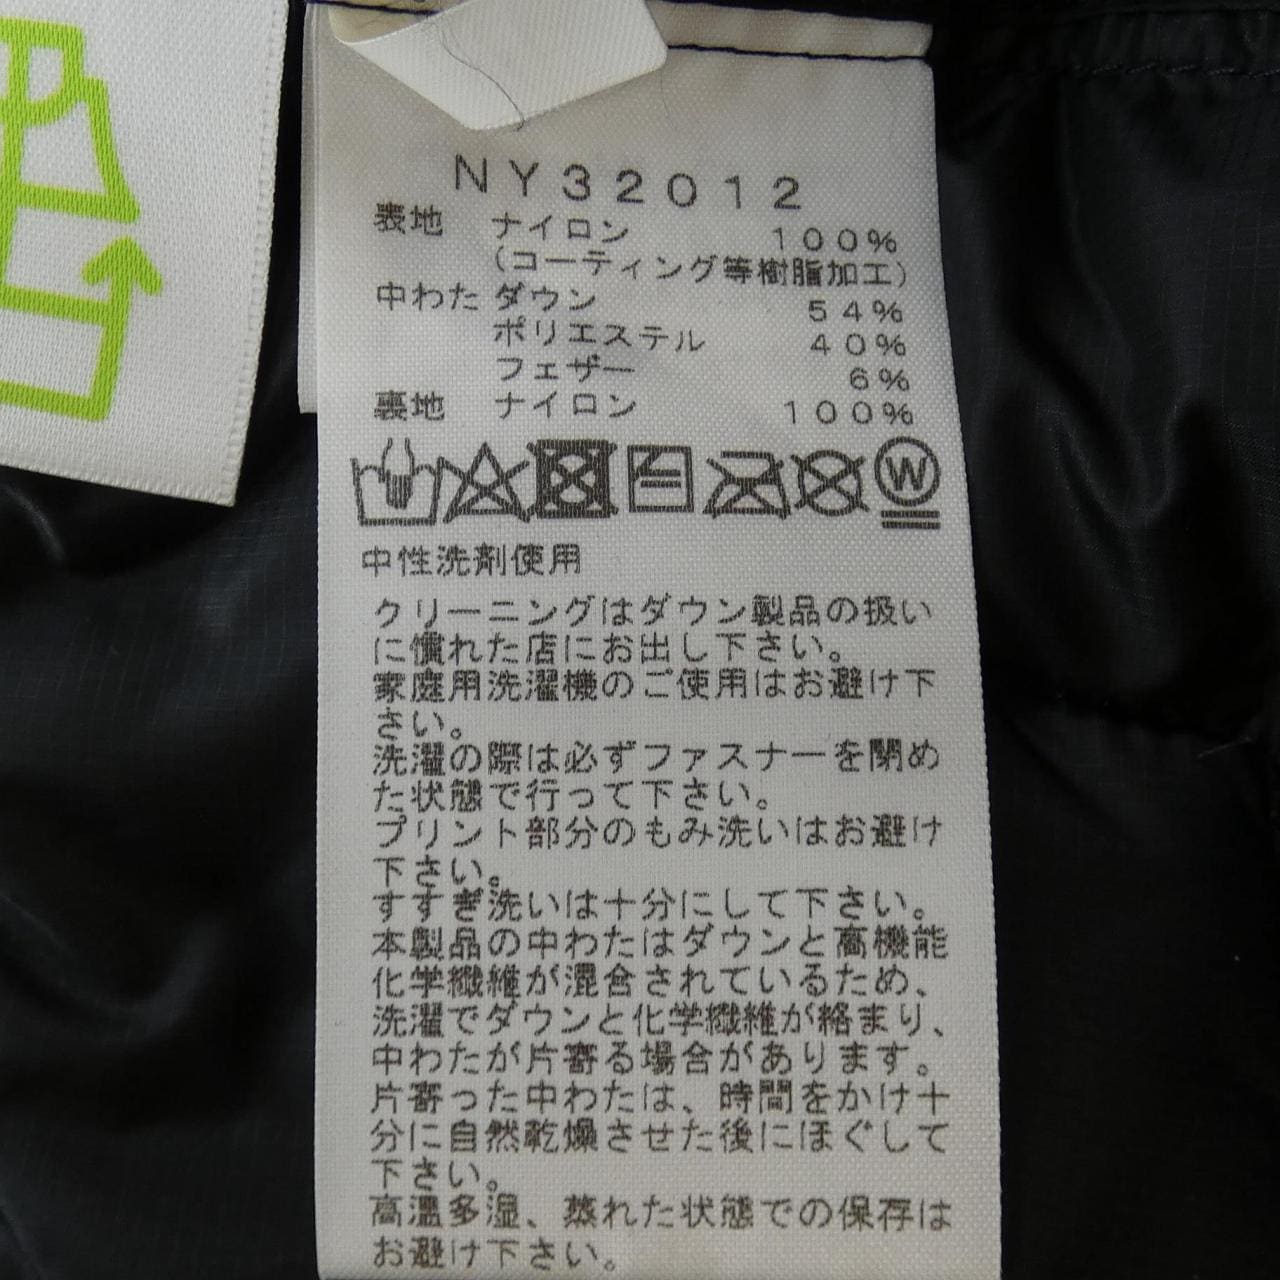 NY32012
表地 ナイロン 100%
(コーティング等樹脂加工)
中わた ダウン 54%
ポリエステル 40%
フェザー 6%
裏地 ナイロン 100%
W
中性洗剤使用
クリーニングはダウン製品の扱い
に慣れた店にお出し下さい。
家庭用洗濯機のご使用はお避け下
さい。
洗濯の際は必ずファスナーを閉め
た状態で行って下さい。
プリント部分のもみ洗いはお避け
下さい。
すすぎ洗いは十分にして下さい。
本製品の中わたはダウンと高機能
化学繊維が混合されているため、
洗濯でダウンと化学繊維が絡まり、
中わたが片寄る場合があります。
片寄った中わたは、時間をかけ十
分に自然乾燥させた後にほぐして
下さい。
高温多湿、蒸れた状態での保存は
お避け下さい。